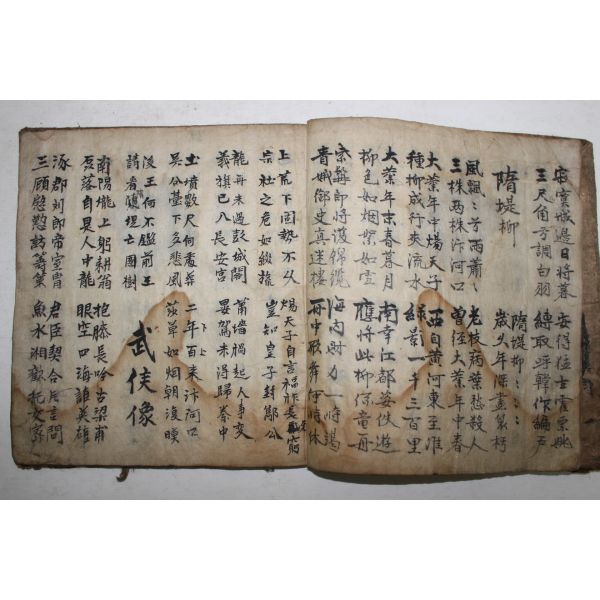 寂寞城邊日將暮 安得士霍姚
三尺角弓調白羽 縛取呼韓作編戶
隋堤柳
隋堤柳〻〻〻
歲久年深盡衰朽
風飄〻兮雨蕭〻
三株兩株汴河口 老枝病葉愁殺人
曾經大業年中春
大業年中煬天子 西自黃河東至淮
種柳成行夾流水 綠影一千三百里
大業年末春暮月 南幸江都恣佚遊
柳色如烟絮如雪 應將此柳係龍舟
紫髯郎將護錦纜 海內財力時竭
青娥御史直迷樓 舟中歌舞何時休
上荒下困勢不久 煬天子自言福祚長無窮
宗社之危如綴旒 豈知皇子封酅公
龍舟未過彭城閣 蕭墻禍起人事變
義旗已入長安宮 晏駕未得歸秦中
土墳數尺何處葬 二年百来汴河口
吳公臺下多悲風 草如烟朝復暮
後王何不鑑前王
請看隋堤亡國樹
武侯像
南陽壠上躬耕翁 抱膝長吟古梁甫
磊落自是人中龍 眼空四海誰英雄
涿郡劉郎帝室冑 君臣契合片言間
三顧慇懃訪籌策 魚水相歡托